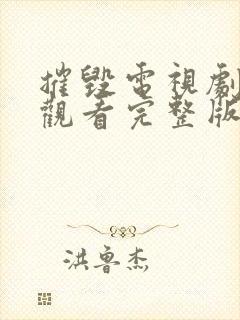 摧毀電視劇
觀看完整版
洪魯杰